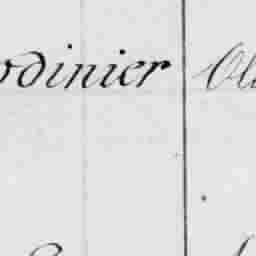 odinier Ol